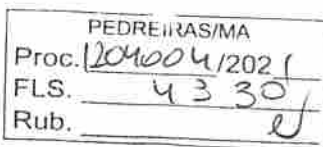 PEDREIRAS/MA
Proc. 1204004/2021
FLS. 4330
Rub.